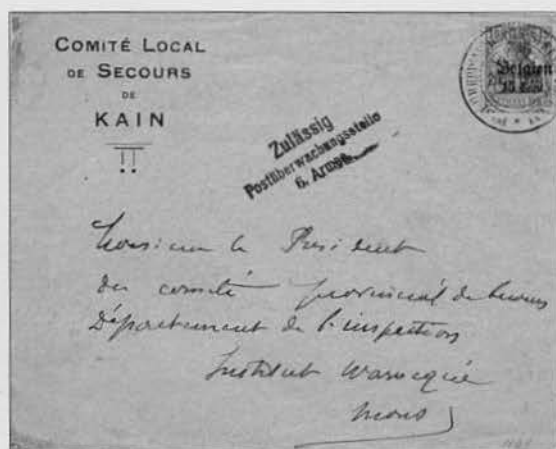 COMITÉ LOCAL
DE SECOURS
DE
KAIN
Belgien
Zulässig
Postüberwachungsstelle
6. Armee
Monsieur le Président
du comité provincial de secours
Département de l'inspection
Institut Warocqué
Mons